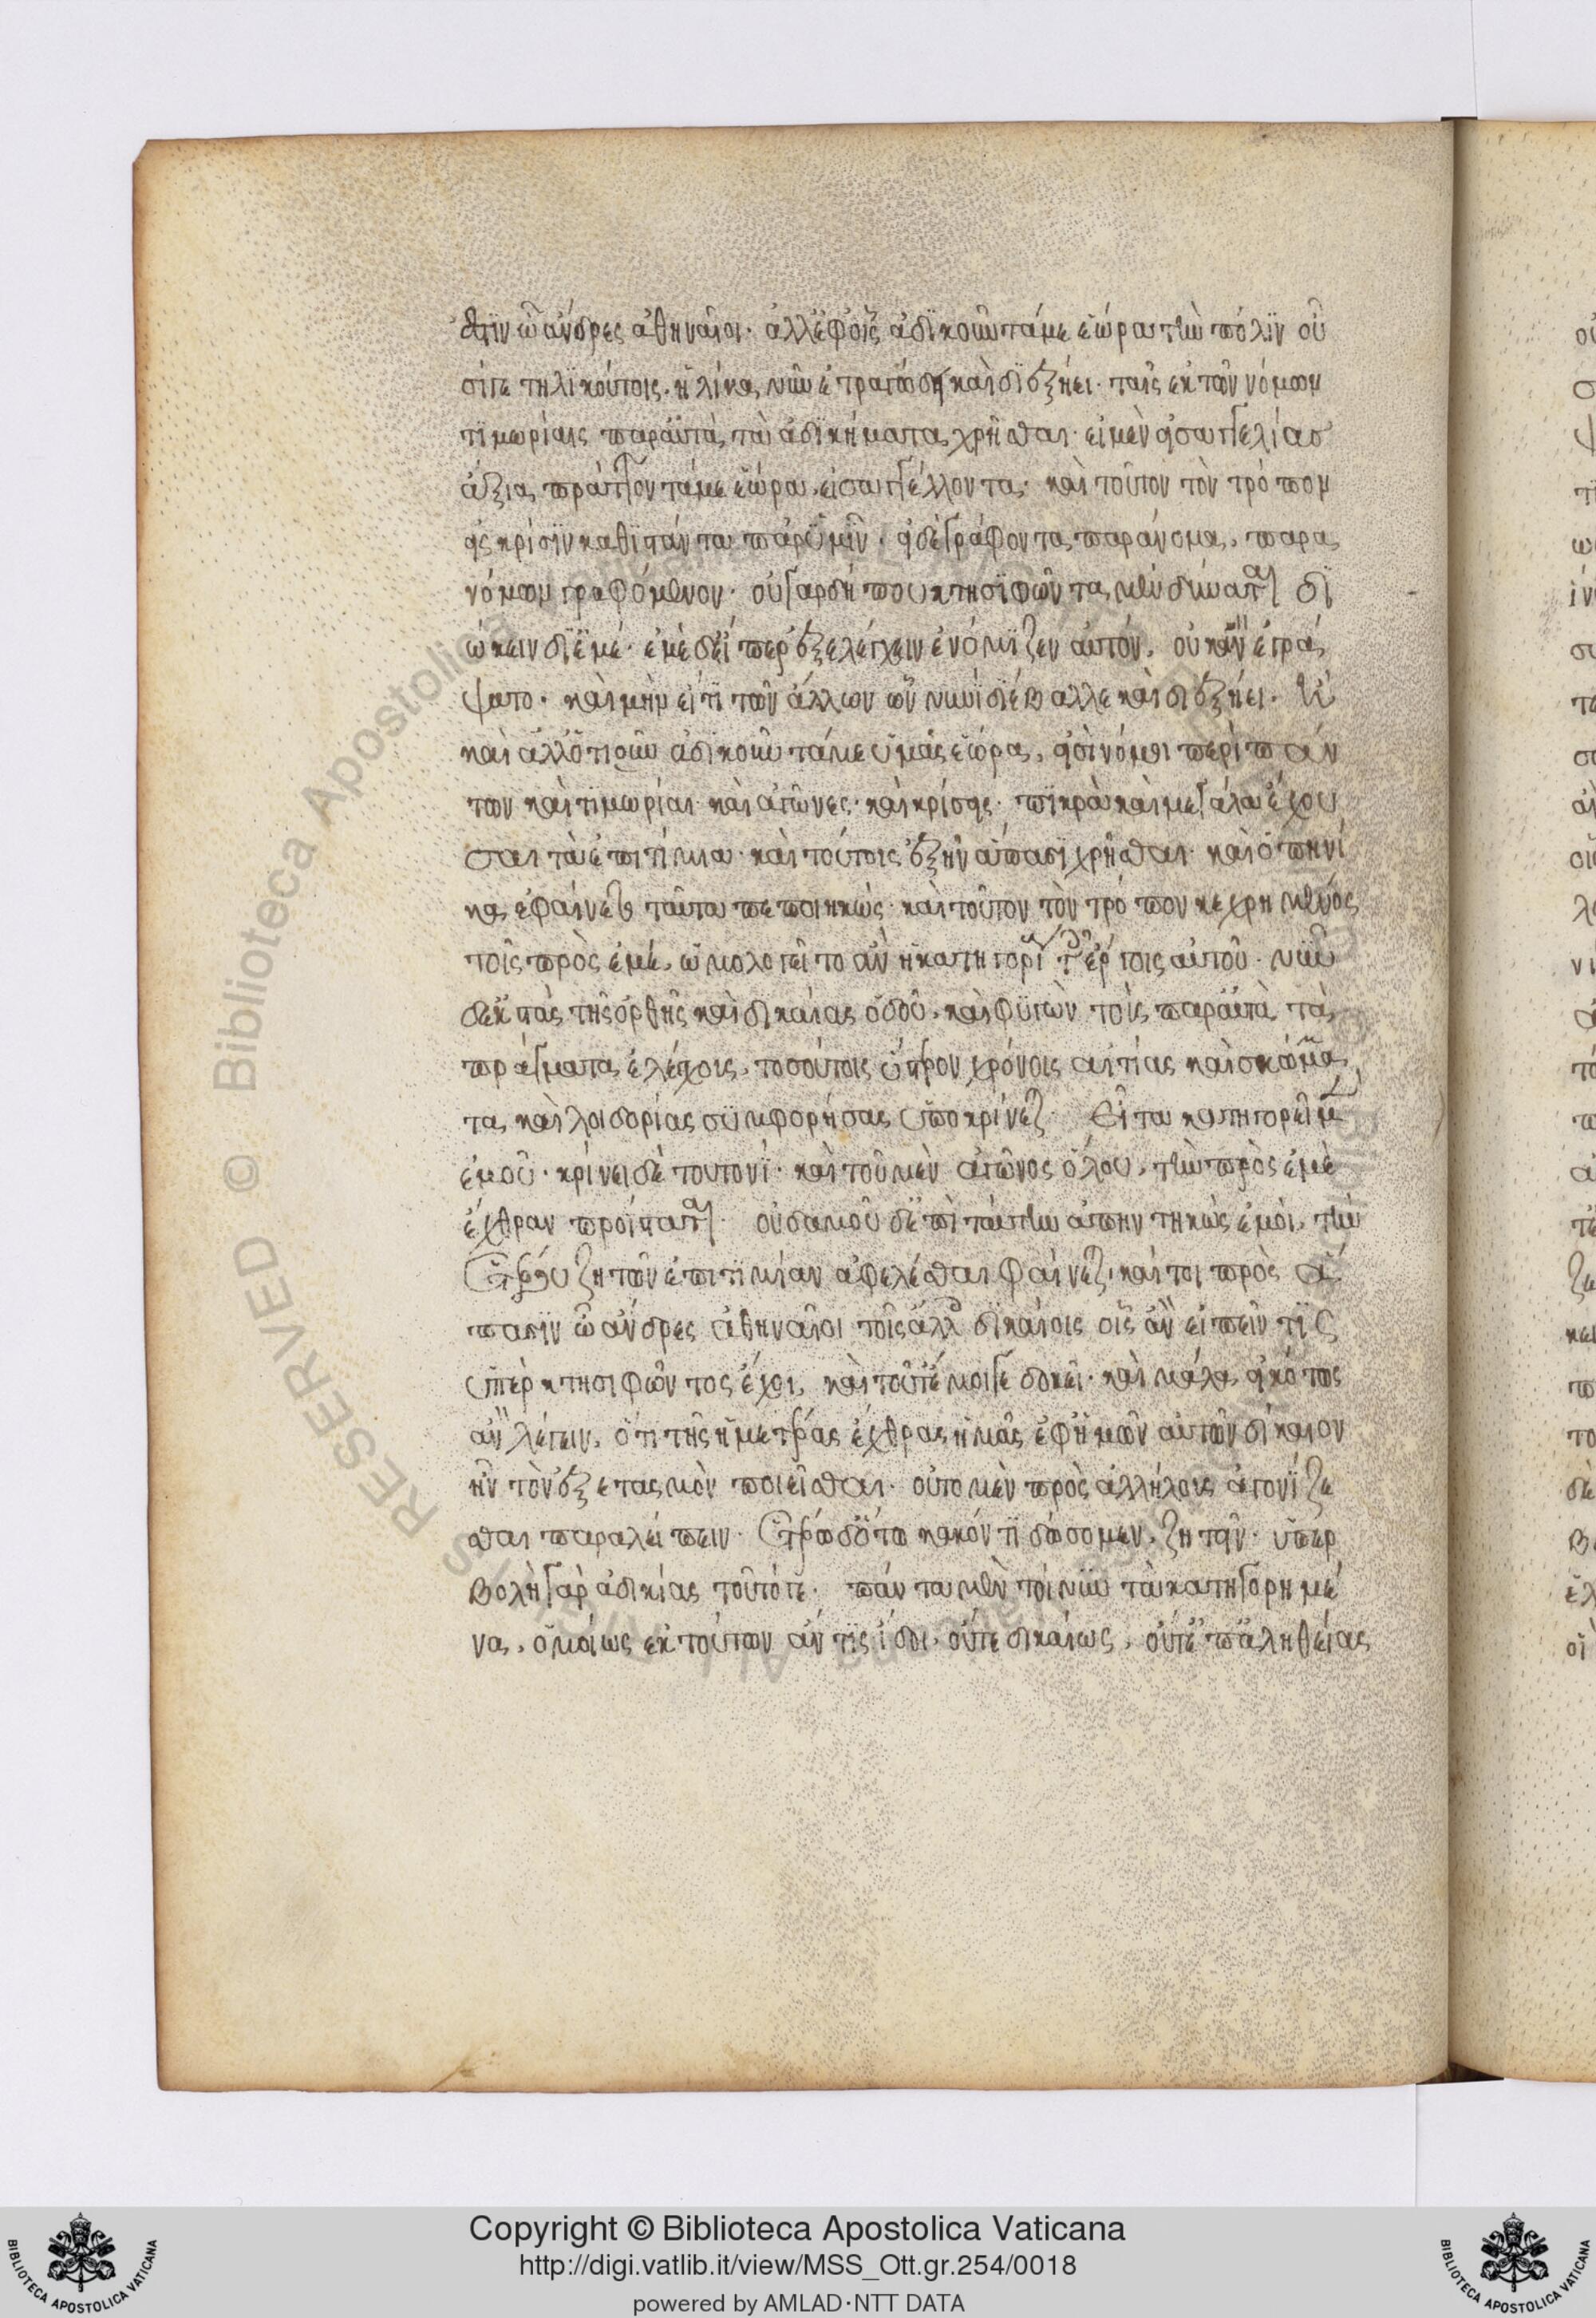 ἐστὶν ὦ ἄνδρες ἀθηναῖοι· ἀλλ ἐφ οἷς ἀδικοῦντά με ἑώρα τὴν πόλιν οὖ
σί γε τηλικούτοις. ἡλίκα νῦν ἐτραγώδει καὶ διεξήει· ταῖς ἐκ τῶν νόμων
τιμωρίαις παρ αὐτὰ τὰ ἀδικήματα χρῆσθαι· εἰ μὲν εἰσαγγελίας
ἄξια πράττοντά με ἑώρα, εἰσαγγέλλοντα· καὶ τοῦτον τὸν τρόπον
εἰς κρίσιν καθιστάντα παρ ὑμῖν· εἰ δὲ γράφοντα παράνομα, παρα
νόμων γραφόμενον· οὐ γὰρ δήπου κτησιφῶντα μὲν δύναται δι
ώκειν δι ἐμέ· ἐμὲ δ εἴπερ ἐξελέγχειν ἐνόμιζεν αὐτόν, οὐκ ἂν ἐγρά
ψατο· καὶ μὴν εἴ τι τῶν ἄλλων ὧν νυνὶ διέβαλλε καὶ διεξήει· ἢ
καὶ ἄλλ ὁτιοῦν ἀδικοῦντά με ὑμᾶς ἑώρα, εἰσὶ νόμοι περὶ πάν
των καὶ τιμωρίαι· καὶ ἀγῶνες· καὶ κρίσεις· πικρὰ καὶ μεγάλα ἔχου
σαι τὰ ἐπιτίμια· καὶ τούτοις ἐξῆν ἅπασι χρῆσθαι· καὶ ὁπηνί
κα ἐφαίνετο ταῦτα πεποιηκὼς· καὶ τοῦτον τὸν τρόπον κεχρημένος
τοῖς πρὸς ἐμέ, ὡμολογεῖτο ἂν ἡ κατηγορία τοῖς ἔργοις αὐτοῦ· νῦν
δ ἐκστὰς τῆς ὀρθῆς καὶ δικαίας ὁδοῦ, καὶ φυγὼν τοὺς παρ αὐτὰ τὰ
πράγματα ἐλέγχους, τοσούτοις ὕστερον χρόνοις αἰτίας καὶ σκώμμα
τα καὶ λοιδορίας συμφορήσας ὑποκρίνεται· εἶτα κατηγορεῖ μὲν
ἐμοῦ· κρίνει δὲ τουτονί· καὶ τοῦ μὲν ἀγῶνος ὅλου, τὴν πρὸς ἐμὲ
ἔχθραν προίσταται· οὐδαμοῦ δ ἐπὶ ταύτην ἀπηντηκὼς ἐμοὶ, τὴν
ἑτέρου ζητῶν ἐπιτιμίαν ἀφελέσθαι φαίνεται, καί τοι πρὸς ἅ
πασιν ὦ ἄνδρες ἀθηναῖοι τοῖς ἄλλοις δικαίοις οἷς ἂν εἰπεῖν τις
ὑπὲρ κτησιφῶντος ἔχοι, καὶ τοῦτ ἔμοιγε δοκεῖ· καὶ μάλα εἰκότως
ἂν λέγειν, ὅτι τῆς ἡμετέρας ἔχθρας ἡμᾶς ἐφ ἡμῶν αὐτῶν δίκαιον
ἦν τὸν ἐξετασμὸν ποιεῖσθαι· οὐ τὸ μὲν πρὸς ἀλλήλους ἀγωνίζε
σθαι παραλείπειν· ἑτέρω δ ὅτω κακόν τι δώσομεν, ζητεῖν· ὑπερ
βολὴ γὰρ ἀδικίας τοῦτό γε· πάντα μὲν τοίνυν τὰ κατηγορημέ
να, ὁμοίως ἐκ τούτων ἄν τις ἴδοι, οὔτε δικαίως, οὔτ ἐπ ἀληθείας
Copyright © Biblioteca Apostolica Vaticana
http://digi.vatlib.it/view/MSS_Ott.gr.254/0018
powered by AMLAD·NTT DATA